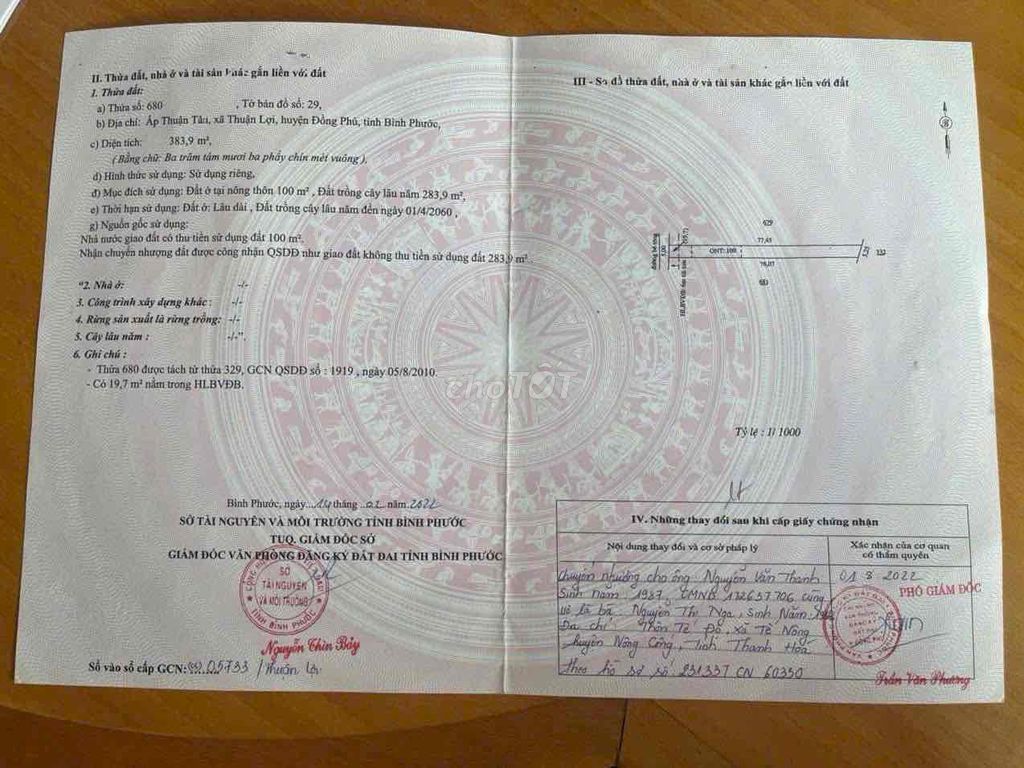 II. Thửa đất, nhà ở và tài sản khác gắn liền với đất
1. Thửa đất:
a) Thửa số: 680 , Tờ bản đồ số: 29,
b) Địa chỉ: Ấp Thuận Tân, xã Thuận Lợi, huyện Đồng Phú, tỉnh Bình Phước,
c) Diện tích: 383,9 m²,
( Bằng chữ: Ba trăm tám mươi ba phẩy chín mét vuông ),
d) Hình thức sử dụng: Sử dụng riêng,
đ) Mục đích sử dụng: Đất ở tại nông thôn 100 m² , Đất trồng cây lâu năm 283,9 m²,
e) Thời hạn sử dụng: Đất ở: Lâu dài , Đất trồng cây lâu năm đến ngày 01/4/2060 ,
g) Nguồn gốc sử dụng:
Nhà nước giao đất có thu tiền sử dụng đất 100 m².
Nhận chuyển nhượng đất được công nhận QSDĐ như giao đất không thu tiền sử dụng đất 283,9 m² .
"2. Nhà ở: -/-
3. Công trình xây dựng khác : -/-
4. Rừng sản xuất là rừng trồng: -/-
5. Cây lâu năm : -/-".
6. Ghi chú :
- Thửa 680 được tách từ thửa 329, GCN QSDĐ số : 1919 , ngày 05/8/2010.
- Có 19,7 m² nằm trong HLBVĐB.
Bình Phước, ngày 14 tháng 02 năm 2022
SỞ TÀI NGUYÊN VÀ MÔI TRƯỜNG TỈNH BÌNH PHƯỚC
TUQ. GIÁM ĐỐC SỞ
GIÁM ĐỐC VĂN PHÒNG ĐĂNG KÝ ĐẤT ĐAI TỈNH BÌNH PHƯỚC
SỞ
TÀI NGUYÊN
VÀ MÔI TRƯỜNG
TỈNH BÌNH PHƯỚC
Nguyễn Thìn Bảy
Số vào sổ cấp GCN: 05733 / Thuận Lợi
chợTỐT
III - Sơ đồ thửa đất, nhà ở và tài sản khác gắn liền với đất
B
629
77,45
5,00
(19,7)
ONT:100
5,21
132
78,07
đường bê tông
Tỷ lệ : 1/ 1000
IV. Những thay đổi sau khi cấp giấy chứng nhận
Nội dung thay đổi và cơ sở pháp lý
Xác nhận của cơ quan
có thẩm quyền
chuyển nhượng cho ông Nguyễn Văn Thanh
Sinh năm 1987, CMND 172657706 cùng
vợ là bà Nguyễn Thị Nga, Sinh Năm
Địa chỉ Thôn Tế Độ, Xã Tế Nông
huyện Nông Cống, Tỉnh Thanh Hóa
theo hồ sơ số 231337 CN 60350
01 3 2022
PHÓ GIÁM ĐỐC
Trần Văn Phương